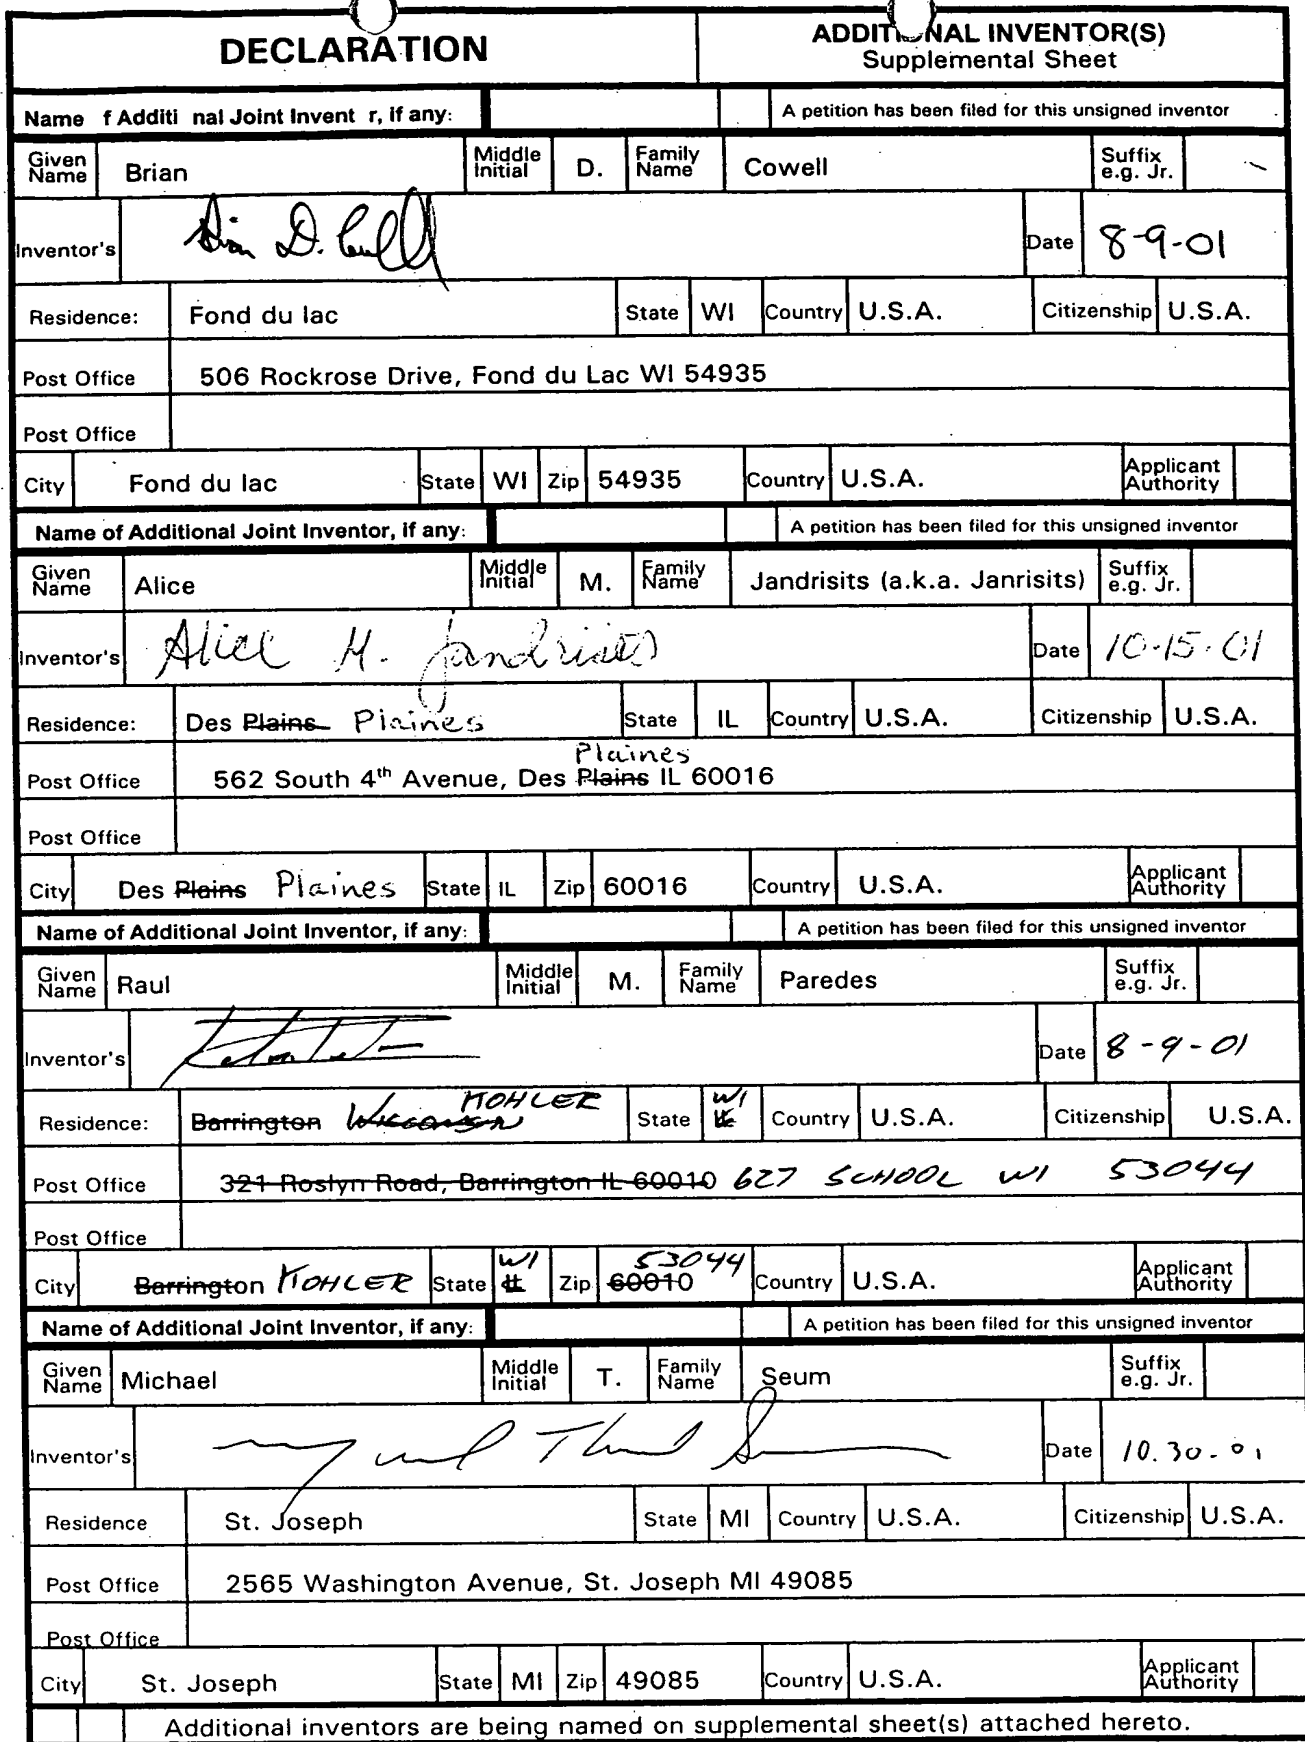 DECLARATION
ADDITIONAL INVENTOR(S)
Supplemental Sheet
Name f Additi nal Joint Invent r, if any: A petition has been filed for this unsigned inventor
Given Name Brian Middle Initial D. Family Name Cowell Suffix e.g. Jr.
Inventor's Brian D. Cowell Date 8-9-01
Residence: Fond du lac State WI Country U.S.A. Citizenship U.S.A.
Post Office 506 Rockrose Drive, Fond du Lac WI 54935
Post Office
City Fond du lac State WI Zip 54935 Country U.S.A. Applicant Authority
Name of Additional Joint Inventor, if any: A petition has been filed for this unsigned inventor
Given Name Alice Middle Initial M. Family Name Jandrisits (a.k.a. Janrisits) Suffix e.g. Jr.
Inventor's Alice M. Jandrisits Date 10-15-01
Residence: Des Plains Plaines State IL Country U.S.A. Citizenship U.S.A.
Plaines
Post Office 562 South 4th Avenue, Des Plains IL 60016
Post Office
City Des Plains Plaines State IL Zip 60016 Country U.S.A. Applicant Authority
Name of Additional Joint Inventor, if any: A petition has been filed for this unsigned inventor
Given Name Raul Middle Initial M. Family Name Paredes Suffix e.g. Jr.
Inventor's Date 8-9-01
KOHLER WI
Residence: Barrington Wisconsin State IL Country U.S.A. Citizenship U.S.A.
Post Office 321 Roslyn Road, Barrington IL 60010 627 SCHOOL WI 53044
Post Office
WI 53044
City Barrington KOHLER State IL Zip 60010 Country U.S.A. Applicant Authority
Name of Additional Joint Inventor, if any: A petition has been filed for this unsigned inventor
Given Name Michael Middle Initial T. Family Name Seum Suffix e.g. Jr.
Inventor's Date 10.30.01
Residence St. Joseph State MI Country U.S.A. Citizenship U.S.A.
Post Office 2565 Washington Avenue, St. Joseph MI 49085
Post Office
City St. Joseph State MI Zip 49085 Country U.S.A. Applicant Authority
Additional inventors are being named on supplemental sheet(s) attached hereto.